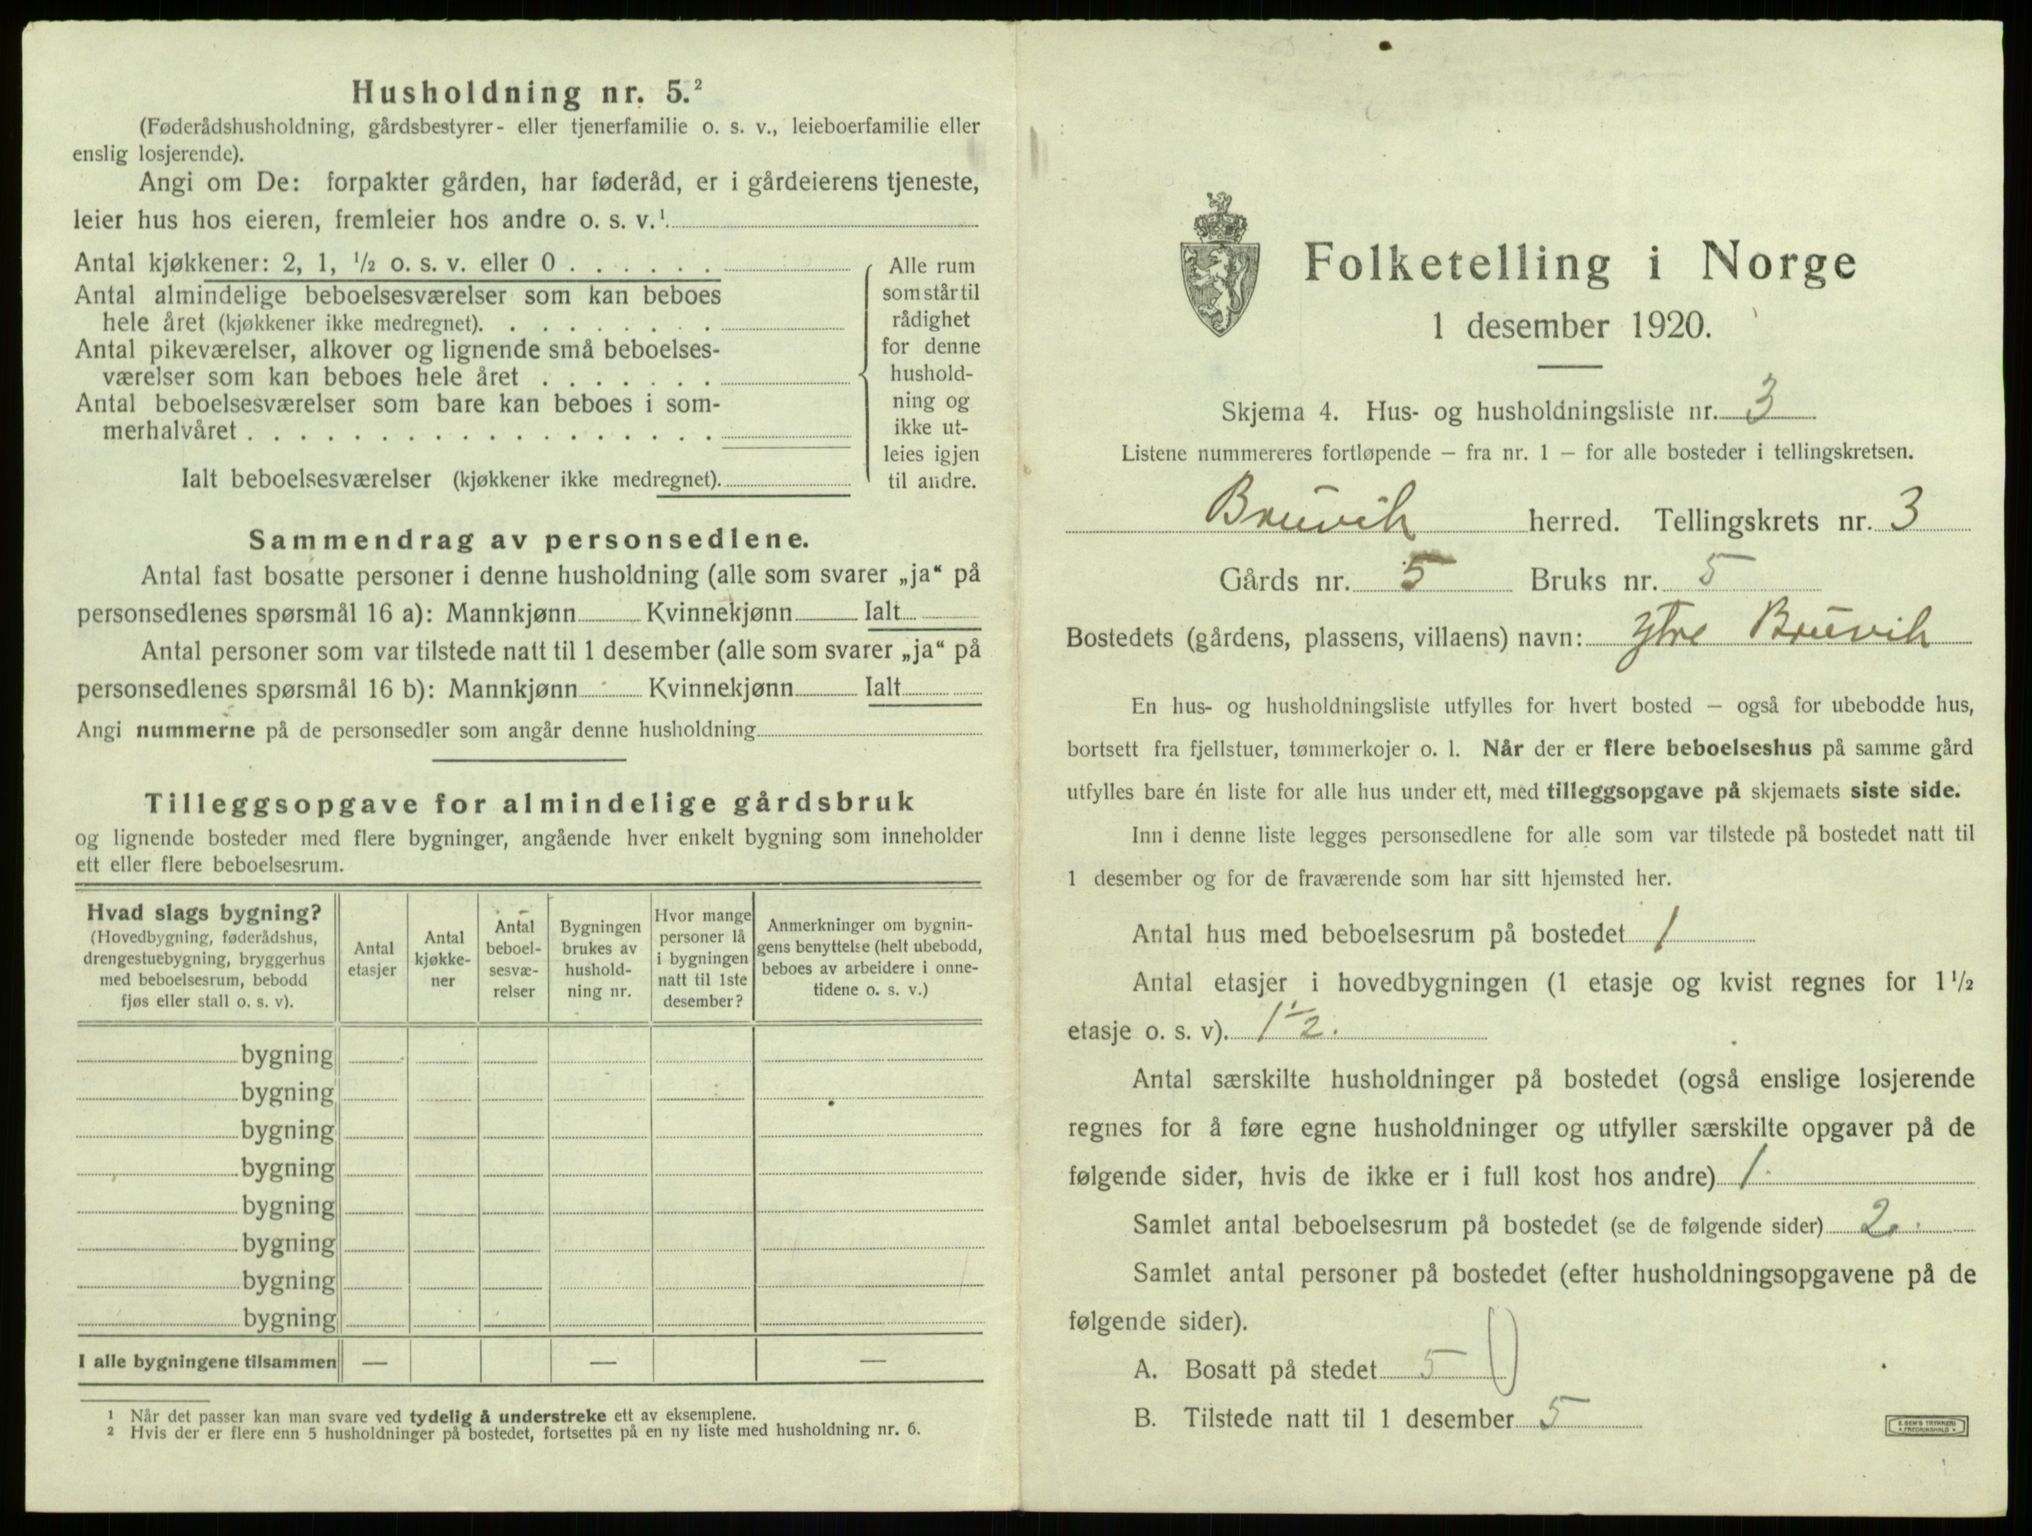 Husholdning nr. 5.²
(Føderådshusholdning, gårdsbestyrer- eller tjenerfamilie o. s. v., leieboerfamilie eller
enslig losjerende).
Angi om De: forpakter gården, har føderåd, er i gårdeierens tjeneste,
leier hus hos eieren, fremleier hos andre o. s. v.¹
Antal kjøkkener: 2, 1, ½ o. s. v. eller 0
Antal almindelige beboelsesværelser som kan beboes
hele året (kjøkkener ikke medregnet).
Antal pikeværelser, alkover og lignende små beboelses-
værelser som kan beboes hele året
Antal beboelsesværelser som bare kan beboes i som-
merhalvåret
Ialt beboelsesværelser (kjøkkener ikke medregnet).
Alle rum
som står til
rådighet
for denne
hushold-
ning og
ikke ut-
leies igjen
til andre.
Sammendrag av personsedlene.
Antal fast bosatte personer i denne husholdning (alle som svarer „ja“ på
personsedlenes spørsmål 16 a): Mannkjønn Kvinnekjønn Ialt
Antal personer som var tilstede natt til 1 desember (alle som svarer „ja“ på
personsedlenes spørsmål 16 b): Mannkjønn Kvinnekjønn Ialt
Angi nummerne på de personsedler som angår denne husholdning
Tilleggsopgave for almindelige gårdsbruk
og lignende bosteder med flere bygninger, angående hver enkelt bygning som inneholder
ett eller flere beboelsesrum.
Hvad slags bygning?
(Hovedbygning, føderådshus,
drengestuebygning, bryggerhus
med beboelsesrum, bebodd
fjøs eller stall o. s. v).
Antal
etasjer
Antal
kjøkke-
ner
Antal
beboel-
sesvæ-
relser
Bygningen
brukes av
hushold-
ning nr.
Hvor mange
personer lå
i bygningen
natt til 1ste
desember?
Anmerkninger om bygnin-
gens benyttelse (helt ubebodd,
beboes av arbeidere i onne-
tidene o. s. v.)
bygning
bygning
bygning
bygning
bygning
bygning
bygning
bygning
I alle bygningene tilsammen — — —
¹ Når det passer kan man svare ved tydelig å understreke ett av eksemplene.
² Hvis der er flere enn 5 husholdninger på bostedet, fortsettes på en ny liste med husholdning nr. 6.
Folketelling i Norge
1 desember 1920.
Skjema 4. Hus- og husholdningsliste nr. 3
Listene nummereres fortløpende – fra nr. 1 – for alle bosteder i tellingskretsen.
Bruvik herred. Tellingskrets nr. 3
Gårds nr. 5 Bruks nr. 5
Bostedets (gårdens, plassens, villaens) navn: Ytre Bruvik
En hus- og husholdningsliste utfylles for hvert bosted – også for ubebodde hus,
bortsett fra fjellstuer, tømmerkojer o. l. Når der er flere beboelseshus på samme gård
utfylles bare én liste for alle hus under ett, med tilleggsopgave på skjemaets siste side.
Inn i denne liste legges personsedlene for alle som var tilstede på bostedet natt til
1 desember og for de fraværende som har sitt hjemsted her.
Antal hus med beboelsesrum på bostedet 1
Antal etasjer i hovedbygningen (1 etasje og kvist regnes for 1½
etasje o. s. v). 1½.
Antal særskilte husholdninger på bostedet (også enslige losjerende
regnes for å føre egne husholdninger og utfyller særskilte opgaver på de
følgende sider, hvis de ikke er i full kost hos andre) 1.
Samlet antal beboelsesrum på bostedet (se de følgende sider) 2.
Samlet antal personer på bostedet (efter husholdningsopgavene på de
følgende sider).
A. Bosatt på stedet 5
B. Tilstede natt til 1 desember 5